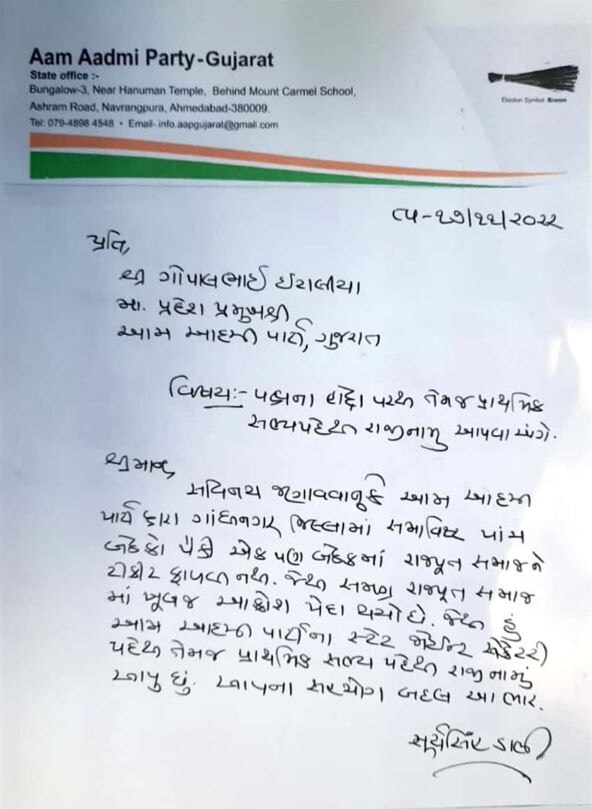 Aam Aadmi Party-Gujarat
State office :-
Bungalow-3, Near Hanuman Temple, Behind Mount Carmel School,
Ashram Road, Navrangpura, Ahmedabad-380009.
Tel: 079-4898 4548 • Email- info.aapgujarat@gmail.com
Election Symbol: Broom
તા-૧૭/૧૧/૨૦૨૨
પ્રતિ,
શ્રી ગોપાલભાઈ ઈટાલીયા
મા. પ્રદેશ પ્રમુખશ્રી
આમ આદમી પાર્ટી, ગુજરાત
વિષય:- પક્ષના હોદ્દા પરથી તેમજ પ્રાથમિક
સભ્યપદેથી રાજીનામુ આપવા અંગે.
શ્રીમાન,
સવિનય જણાવવાનુકે આમ આદમી
પાર્ટી દ્વારા ગાંધીનગર જિલ્લામાં સમાવિષ્ટ પાંચ
બેઠકો પૈકી એક પણ બેઠકમાં રાજપૂત સમાજને
ટીકીટ ફાળવી નથી. જેથી સમગ્ર રાજપૂત સમાજ
માં ખુબજ આક્રોશ પેદા થયો છે. જેથી હું
આમ આદમી પાર્ટીના સ્ટેટ જોઈન્ટ સેક્રેટરી
પદેથી તેમજ પ્રાથમિક સભ્ય પદેથી રાજીનામું
આપુ છું. આપના સહયોગ બદલ આભાર.
સૂર્યસિંહ ડાભી